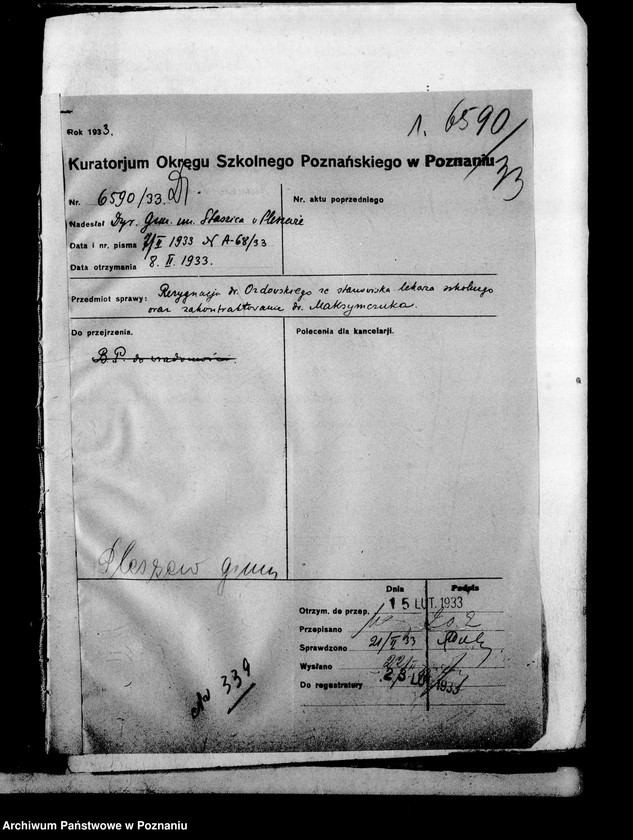 Rok 1933.
1. 6590/33
Kuratorjum Okręgu Szkolnego Poznańskiego w Poznaniu
Nr. 6590/33.
Nr. aktu poprzedniego
Nadesłał Dyr. Gim. im. Staszica w Pleszewie
Data i nr. pisma 7/II 1933 N A-68/33
Data otrzymania 8. II. 1933.
Przedmiot sprawy: Rezygnacja dr. Ozdowskiego ze stanowiska lekarza szkolnego
oraz zakontraktowanie dr. Maksymczuka.
Do przejrzenia.
Polecenia dla kancelarji.
B.P. do wiadomości.
Pleszew gimn
Dnia
Podpis
Otrzym. do przep. 15 LUT. 1933
Przepisano
Sprawdzono 21/II 33
Wysłano 22/II
Do regestratury 23 LUT 1933
339
Archiwum Państwowe w Poznaniu